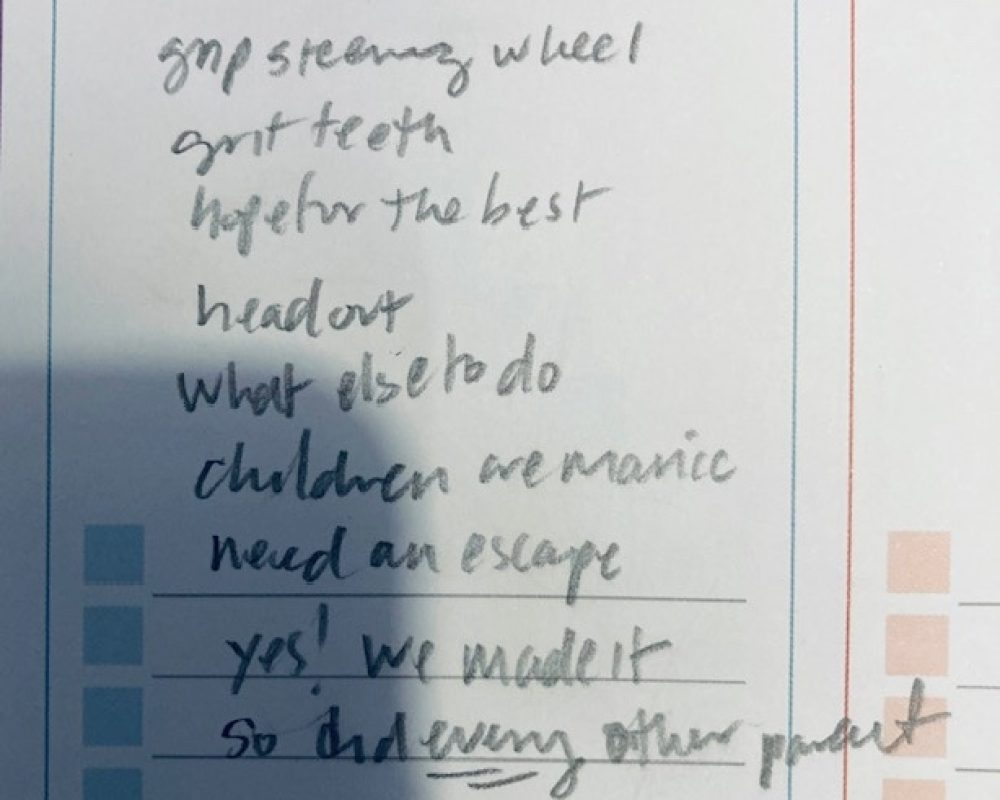 grip steering wheel
grit teeth
hope for the best
head out
what else to do
children are manic
need an escape
yes! we made it
so did every other parent